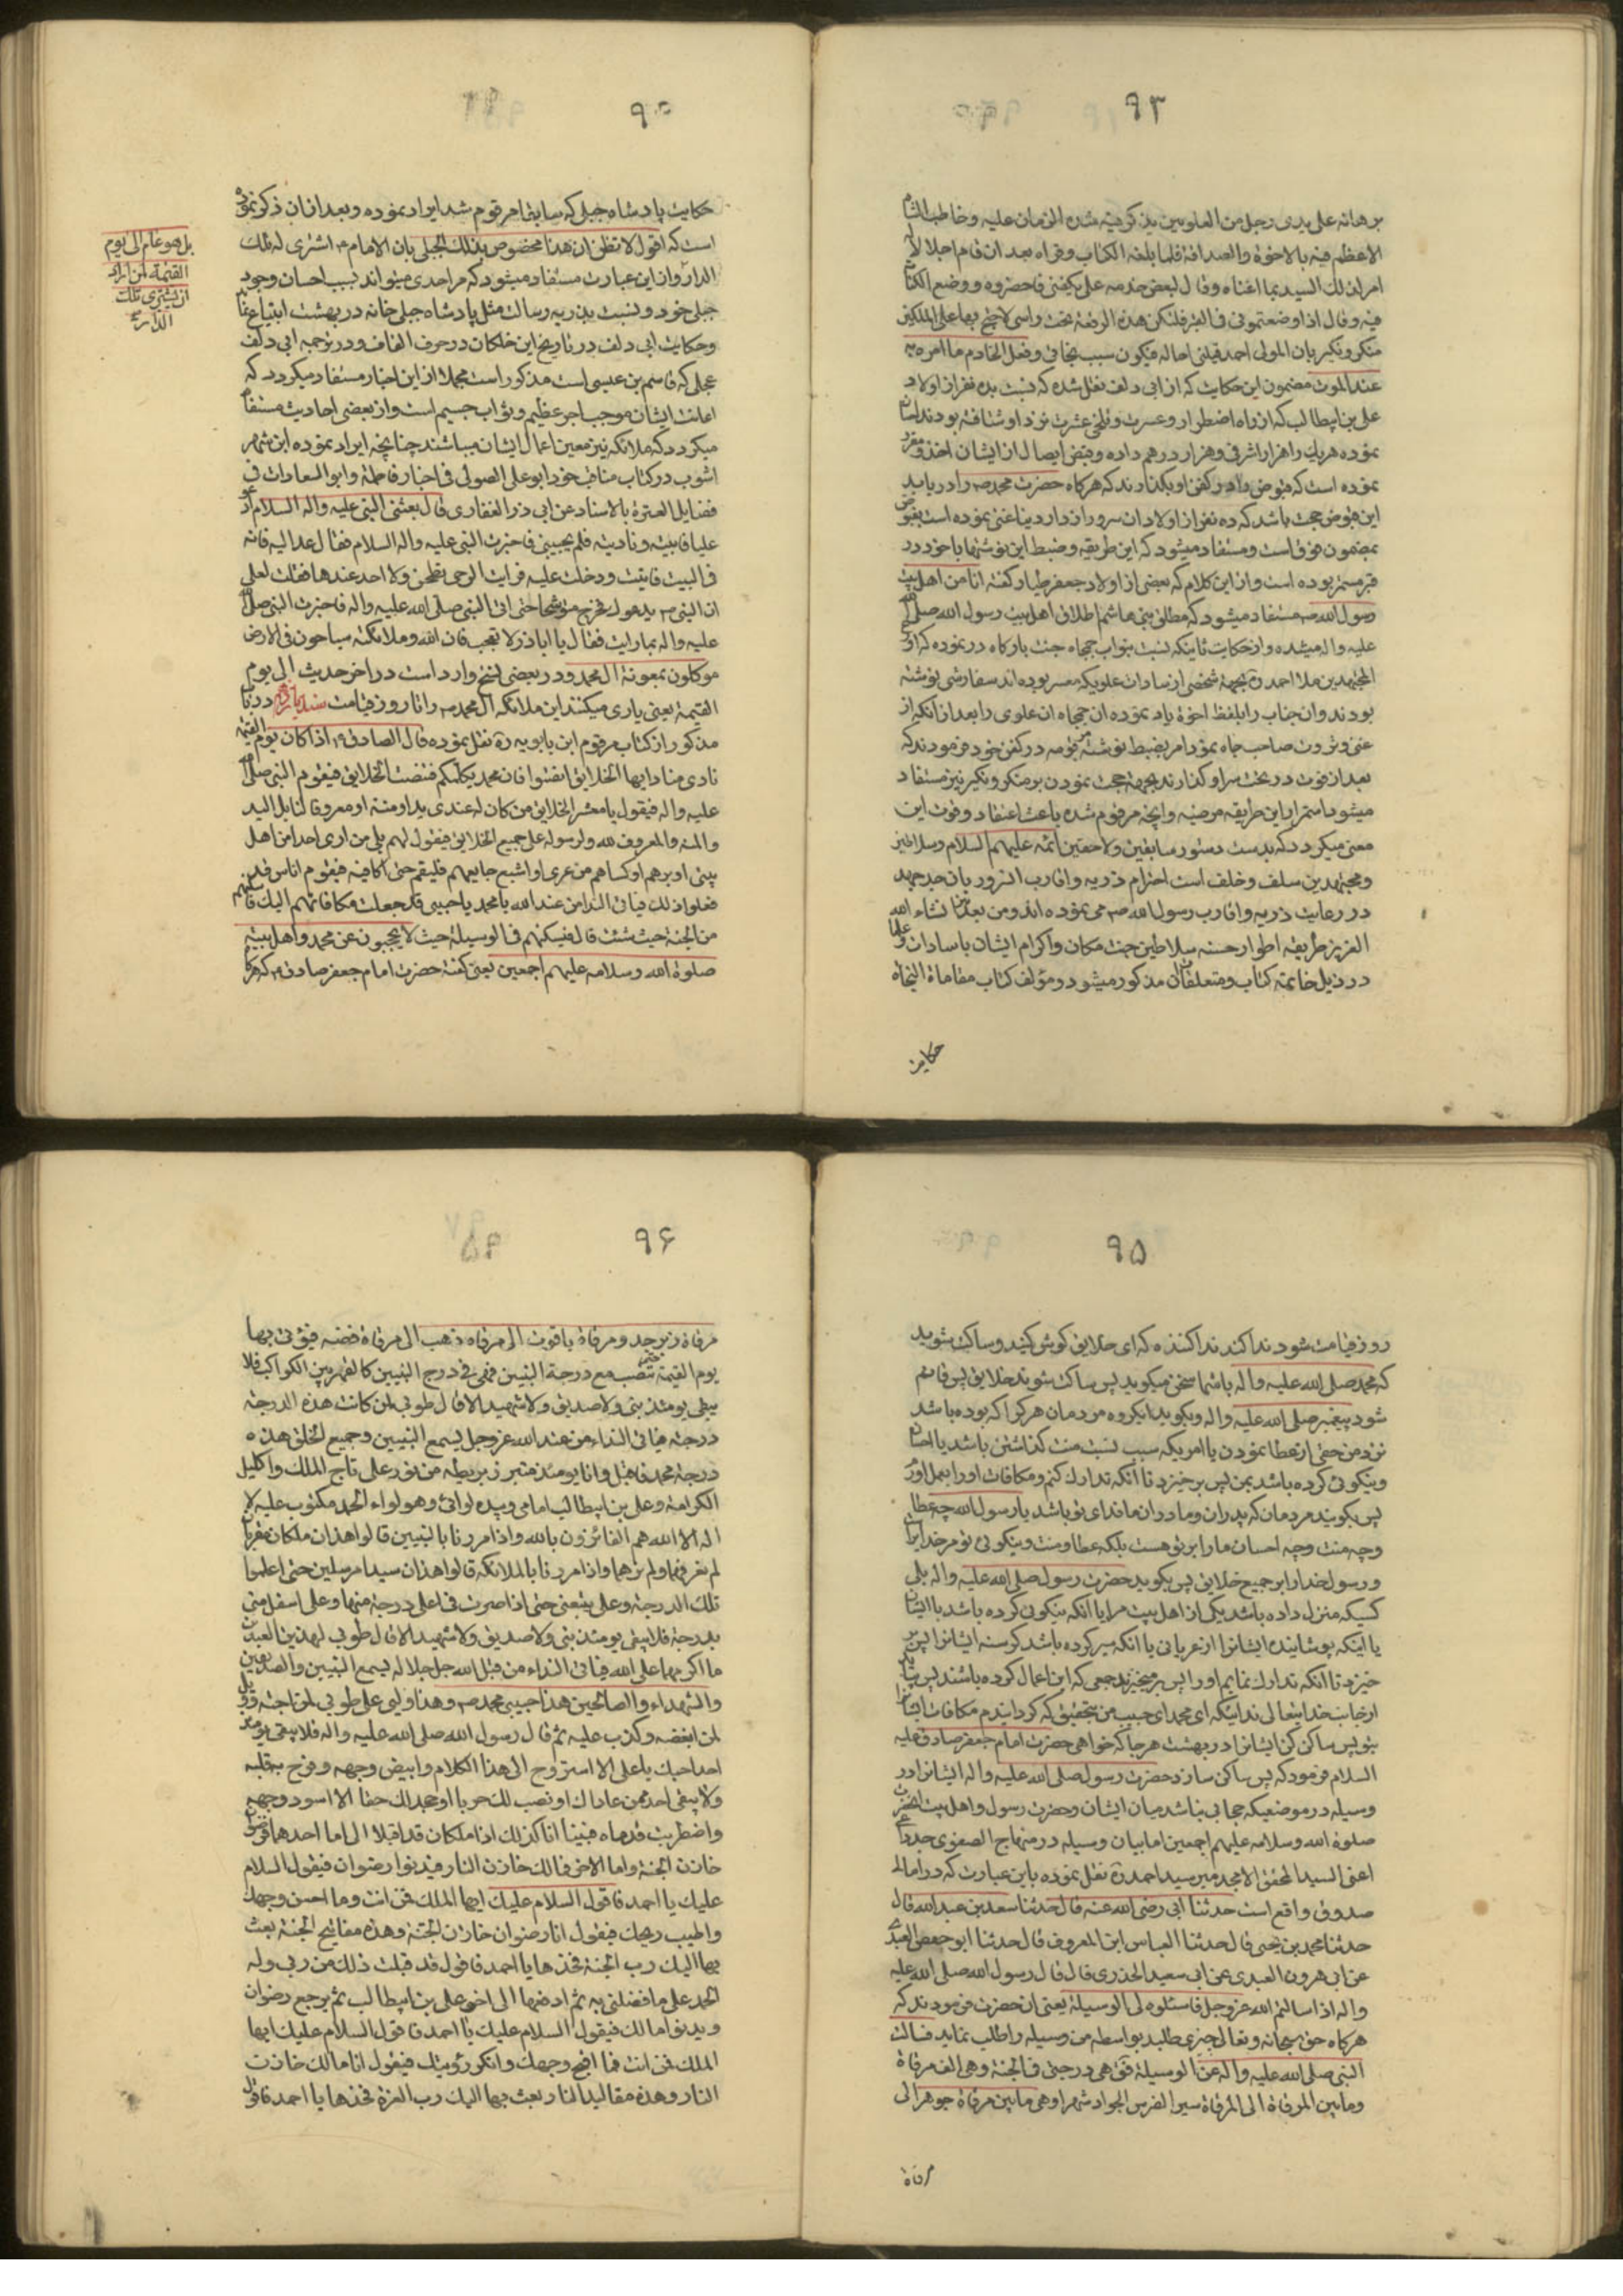 ۹۳
برهانه علی یدی رجل من العلویین
الاعظم فیه بالاخوة والصداقة فلما بلغه الکتاب وقراه بعد ان قام اجلالا
امر لذلک السید بما اغناه وقال لبعض خدمه علی بکفنی فاحضروه ووضع الکتاب
فیه وقال اذا وضعتمونی فی القبر فلتکن هذه الرقعة تحت راسی لاحتج بها علی الملکین
منکر ونکیر بان المولی احمد قبلنی اخا له فیکون سبب نجاتی وفعل الخادم ما امره به
عند الموت مضمون این حکایت که از ابی دلف نقل شده که نسبت بده نفر از اولاد
علی بن ابیطالب که از راه اضطرار وعسرت وتلخی عشرت نزد او شتافته بودند احسان
نموده هریک را هزار اشرفی وهزار درهم داده وقبض ایصال از ایشان اخذ و مقرر
نموده است که قبوض را در کفن او بگذارند که هرکاه حضرت محمد ص را دریابد
این قبوض حجت باشد که ده نفر از اولاد ان سرور را در دار دنیا غنی نموده است
بمضمون فوق است ومستفاد میشود که این طریقه وضبط این نوشتها با خود در
قبر مستمر بوده است واز این کلام که بعضی از اولاد جعفر طیار کفته انا من اهل بیت
رسول الله ص مستفاد میشود که مطلق بنی هاشم اطلاق اهل بیت رسول الله صلی الله
علیه واله میشده واز حکایت ثانیکه نسبت بنواب جمجاه جنت بارکاه در نموده که
المجتهدین ملا احمد ره بجهة شخصی از سادات علویکه معسر بوده اند سفارشی نوشته
بودند وان جناب را بلفظ اخوة یاد نموده ان جمجاه ان علوی را بعد از آنکه از
غنی وثروت صاحب جاه نمود امر بضبط نوشته مرقومه در کفن خود فرمودند که
بعد از فوت در تحت سر او کذارند بجهة حجت نمودن بر منکر ونکیر نیز مستفاد
میشود استمرار این طریقه مرضیه وانچه مرقوم شده باعث اعتقاد وقوت این
معنی میکردد که بدست دستور سابقین ولاحقین ائمه علیهم السلام وسلاطین
ومجتهدین سلف وخلف است احترام ذریه واقارب
در رعایت ذریه واقارب رسول الله ص می نموده اند ومن بعد هذا انشاء الله
العزیز طریقه اطوار حسنه سلاطین جنت مکان واکرام ایشان با سادات وعلما
در ذیل خاتمه کتاب ومتعلقات ان مذکور میشود ومؤلف کتاب مقامات النجاة
حکایت
حکایت پادشاه جبلی که سابقا مرقوم شد ایراد نموده وبعد از ان ذکر نموده
است که اقول لا تظن ان هذا مخصوص بذلک الجبلی بان الامام ع اشتری له تلک
الدار واز این عبارت مستفاد میشود که هر احدی میتواند بسبب احسان وجود
جبلی خود ونسبت بذریه رسالت مثل پادشاه جبلی خانه در بهشت ابتیاع نماید
وحکایت ابی دلف در تاریخ این خلکان در حرف القاف ودر ترجمه ابی دلف
عجلی که قاسم بن عیسی است مذکور است مجملا از این اخبار مستفاد میکردد که
اعانت ایشان موجب اجر عظیم وثواب جسیم است واز بعضی احادیث مستفاد
میکردد که ملائکه نیز معین اعمال ایشان میباشند چنانچه ایراد نموده ابن شهر
اشوب در کتاب مناقب خود ابو علی الصولی فی اخبار فاطمة وابو السعادات فی
فضایل العترة بالاسناد عن ابی ذر الغفاری قال بعثنی النبی علیه واله السلام ادعو
علیا فاتیت بیته ونادیته فلم یجیبنی فاخبرت النبی علیه واله السلام فقال عد الیه فانه
فی البیت فاتیت ودخلت علیه فرایت الرحی تطحن ولا احد عندها فقلت لعلی
ان النبی ص یدعوک فخرج متوشحا حتی اتی النبی صلی الله علیه واله فاخبرت النبی صلی الله
علیه واله بما رایت فقال یا اباذر لا تعجب فان لله ملائکة سیاحون فی الارض
موکلون بمعونة ال محمد ودر بعضی نسخ وارد است در اخر حدیث الی یوم
القیمة یعنی یاری میکنند این ملائکه آل محمد ص را تا روز قیامت
مذکور از کتاب مرقوم ابن بابویه ره نقل نموده قال الصادق ع اذا کان یوم القیمة
نادی مناد ایها الخلایق انصتوا فان محمد یکلمکم فتنصت الخلایق فیقوم النبی صلی الله
علیه واله فیقول یا معشر الخلایق من کان له عندی ید او منة او معروف
والمنة والمعروف لله ولرسوله علی جمیع الخلایق فیقول لهم بلی من اوی احدا من اهل
بیتی او برهم او کساهم من عری او اشبع جایعهم فلیقم حتی اکافیه فیقوم اناس قد
فعلوا ذلک فیاتی الندا من عند الله یا محمد یا حبیبی قد جعلت مکافاتهم الیک فاسکنهم
من الجنة حیث شئت قال فیسکنهم فی الوسیلة حیث لا یحجبون عن محمد واهل بیته
صلوة الله وسلامه علیهم اجمعین یعنی کفته حضرت امام جعفر صادق ع که هرکاه
بل هو عام الی یوم
القیمة لمن اراد
ان یشتری تلک
الدار
۹۵
روز قیامت شود ندا کند ندا کننده که ای خلایق کوش کنید وساکت شوید
که محمد صلی الله علیه واله با شما سخن میکوید پس ساکت شوند خلایق پس قائم
شود پیغمبر صلی الله علیه واله وبکوید ایکروه مردمان هرکرا که بوده باشد
نزد من حقی از عطا نمودن یا امریکه سبب نسبت منت کذاشتن باشد یا احسان
ونیکوئی کرده باشد بمن پس برخیزد تا آنکه تدارک کنم ومکافات او را بعمل اورم
پس بکویند مردمان که پدران ومادران ما فدای تو باشد یا رسول الله چه عطا
وچه منت وچه احسان ما را بر تو هست بلکه عطا ومنت ونیکوئی تو مر خدایراست
ورسول خدا را بر جمیع خلایق پس بکوید حضرت رسول صلی الله علیه واله بلی
کسیکه منزل داده باشد یکی از اهل بیت مرا یا آنکه نیکوئی کرده باشد با ایشان
یا اینکه پوشانیده ایشانرا از عریانی یا آنکه سیر کرده باشد کرسنه ایشانرا پس بر
خیزد تا آنکه تدارک نمایم او را پس برمیخیزند جمعی که این اعمال کرده باشند پس
از جانب خدایتعالی ندا اینکه ای محمد ای حبیب من بتحقیق که کردانیدم مکافات ایشانرا
بتو پس ساکن کن ایشانرا در بهشت هرجا که خواهی حضرت امام جعفر صادق علیه
السلام فرمود که پس ساکن سازد حضرت رسول صلی الله علیه واله ایشانرا در
وسیله در موضعیکه حجابی نباشد میان ایشان وحضرت رسول واهل بیت انحضرت
صلوة الله وسلامه علیهم اجمعین اما بیان وسیله در منهاج الصفوی
اعنی السید المحقق الامجد میر سید احمد ره نقل نموده باین عبارت که در امالی
صدوق واقع است حدثنا ابی رضی الله عنه قال حدثنا سعد بن عبد الله قال
حدثنا محمد بن یحیی قال حدثنا العباس ابن المعروف قال حدثنا ابو حفص العبدی
عن ابی هرون العبدی عن ابی سعید الخدری قال قال رسول الله صلی الله علیه
واله اذا سالتم الله عزوجل فاسئلوه لی الوسیلة یعنی ان حضرت فرمودند که
هرکاه حق سبحانه وتعالی چیزی طلبید بواسطه من وسیله را طلب نماید فسالت
النبی صلی الله علیه واله عن الوسیلة فق هی درجتی فی الجنة وهی الف مرقاة
وما بین المرقاة الی المرقاة سیر الفرس الجواد شهرا وهی ما بین مرقاة جوهر الی
مرقاة
۹۶
مرقاة زبرجد ومرقاة یاقوت الی مرقاه ذهب الی مرقاة فضه فیؤتی بها
یوم القیمة حتی تنصب مع درجة النبیین فهی فی درج النبیین کالقمر بین الکواکب فلا
یبقی یومئذ نبی ولا صدیق ولا شهید الا قال طوبی لمن کانت هذه الدرجة
درجته فیاتی النداء من عند الله عزوجل یسمع النبیین وجمیع الخلق هذه
درجة محمد فاقبل وانا یومئذ متزر بریطه من نور علی تاج الملک واکلیل
الکرامة وعلی بن ابیطالب امامی وبیده لوائی وهو لواء الحمد مکتوب علیه لا
اله الا الله هم الفائزون بالله واذا مررنا بالنبیین قالوا هذان ملکان مقربان
لم نعرفهما ولم نرهما واذا مررنا بالملائکه قالوا هذان سیدا مرسلین حتی اعلوا
تلک الدرجة وعلی یتبعنی حتی اذا صرت فی اعلی درجة منها وعلی اسفل منی
بدرجة فلا یبقی یومئذ نبی ولا صدیق ولا شهید الا قال طوبی لهذین العبدین
ما اکرمهما علی الله فیاتی النداء من قبل الله جل جلاله یسمع النبیین والصدیقین
والشهداء والصالحین هذا حبیبی محمد ص وهذا ولیی علی طوبی لمن احبه وویل
لمن ابغضه وکذب علیه ثم قال رسول الله صلی الله علیه واله فلا یبقی یومئذ
احد احبک یا علی الا استروح الی هذا الکلام وابیض وجهه وفرح به قلبه
ولا یبقی احد ممن عاداک او نصب لک حربا او جحد لک حقا الا اسود وجهه
واضطربت قدماه فبینا انا کذلک اذا ملکان قد اقبلا الی اما احدهما فرضوان
خازن الجنة واما الاخر فمالک خازن النار فیدنوا رضوان فیقول السلام
علیک یا احمد فاقول السلام علیک ایها الملک من انت وما احسن وجهک
واطیب ریحک فیقول انا رضوان خازن الجنة وهذه مفاتیح الجنة بعث
بها الیک رب الجنة فخذها یا احمد فاقول قد قبلت ذلک من ربی وله
الحمد علی ما فضلنی به ثم ادفعها الی اخی علی بن ابیطالب ثم یرجع رضوان
ویدنو مالک فیقول السلام علیک یا احمد فاقول السلام علیک ایها
الملک من انت فما اقبح وجهک وانکر رؤیتک فیقول انا مالک خازن
النار وهذه مقالید النار بعث بها الیک رب العزة فخذها یا احمد فاقول